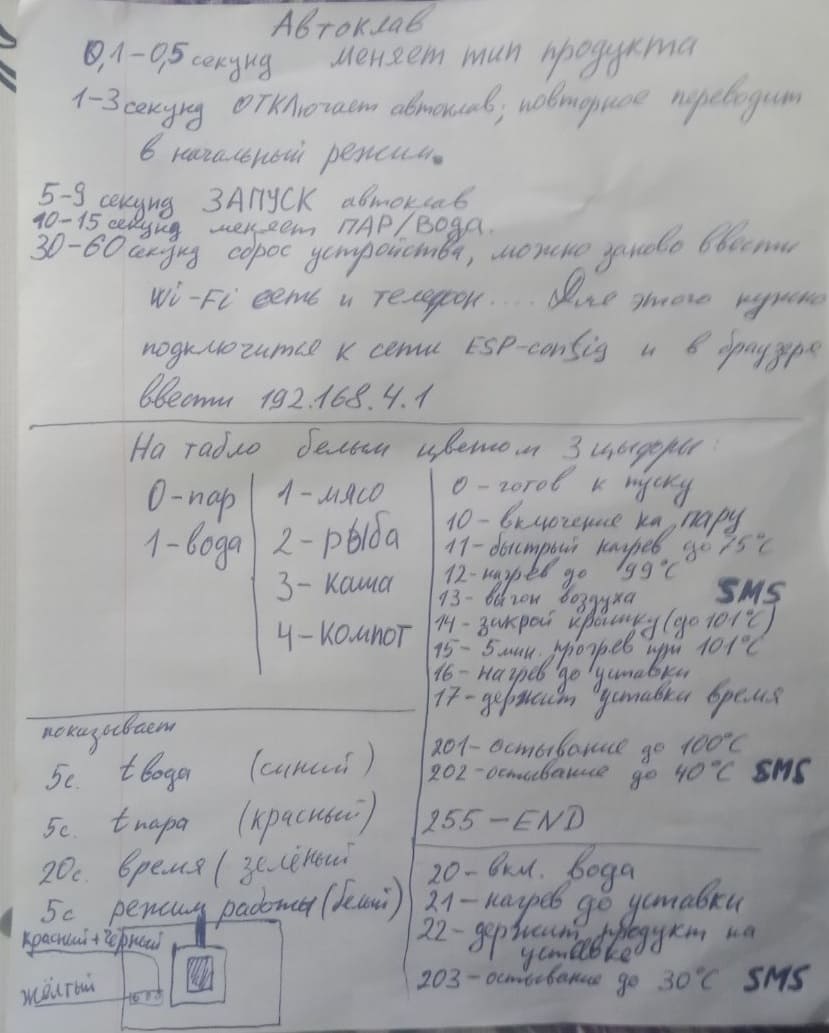 Автоклав
0,1-0,5 секунд меняет тип продукта
1-3 секунд ОТКЛючает автоклав; повторное переводит
в начальный режим.
5-9 секунд ЗАПУСК автоклав
10-15 секунд меняет ПАР/Вода.
30-60 секунд сброс устройства, можно заново ввести
Wi-Fi сеть и телефон.... Для этого нужно
подключится к сети ESP-config и в браузере
ввести 192.168.4.1
На табло белым цветом 3 цыфоры:
0-пар
1-вода
1-мясо
2-рыба
3-каша
4-компот
0-готов к пуску
10-включение на пару
11-быстрый нагрев до 75°С
12-нагрев до 99°С
13-выгон воздуха SMS
14-закрой крышку (до 101°С)
15-5мин. прогрев при 101°С
16-нагрев до уставки
17-держит уставки время
201-остывание до 100°С
202-остывание до 40°С SMS
255-END
показывает
5с. t вода (синий)
5с. t пара (красный)
20с. время (зелёный
5с режим работы (белый)
20-вкл. вода
21-нагрев до уставки
22-держит продукт на
уставке
203-остывание до 30°С SMS
красный+чёрный
жёлтый